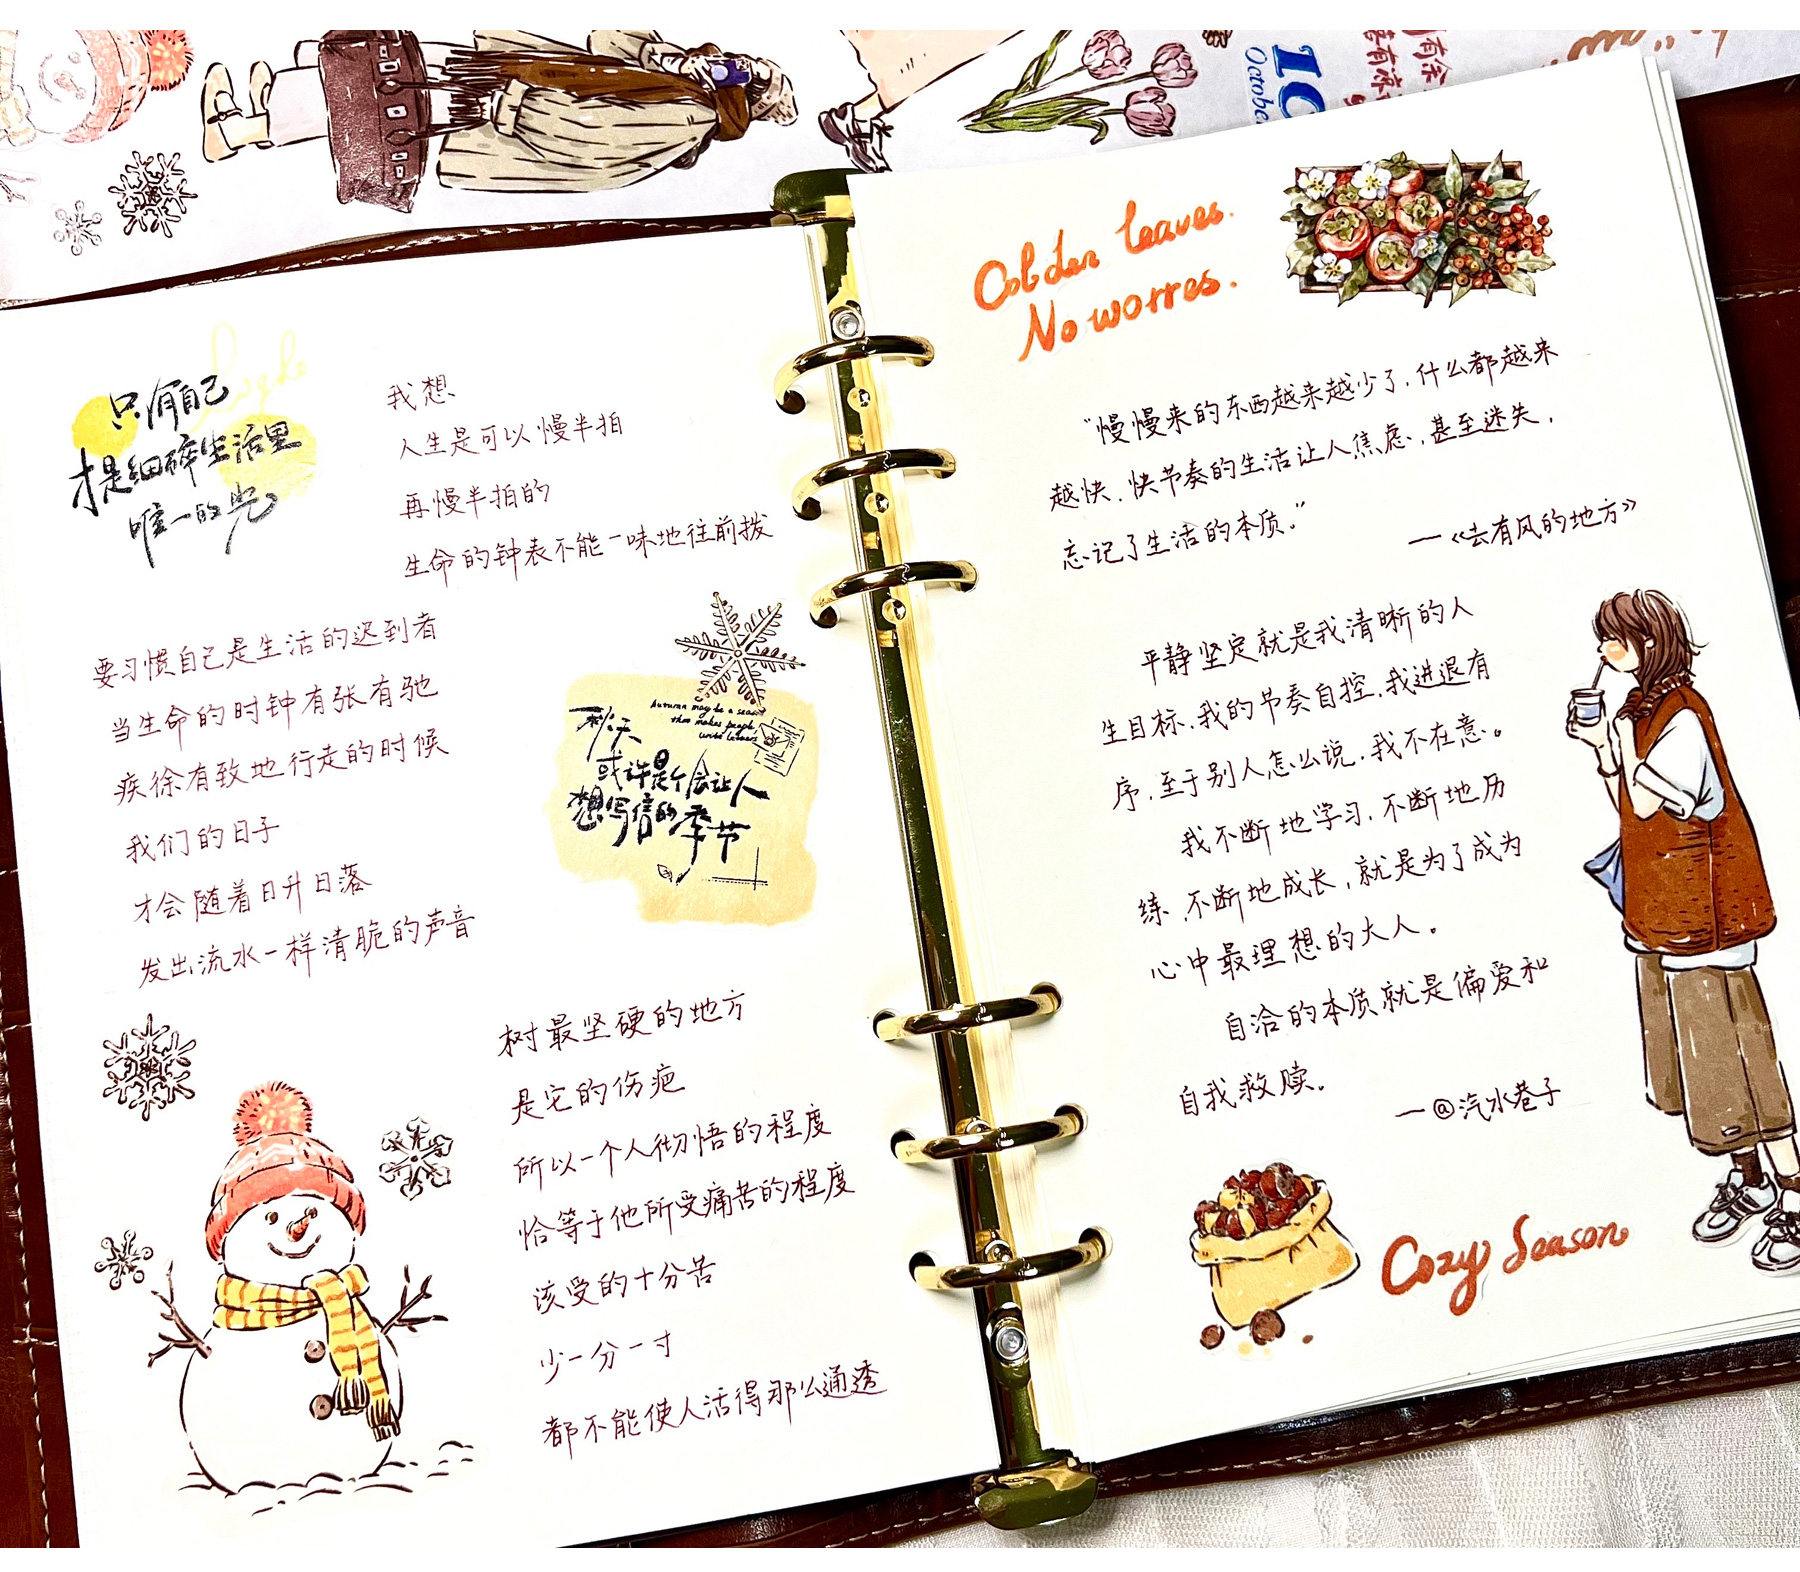 10
October
只有自己
才是细碎生活里
唯一的光
我想
人生是可以慢半拍
再慢半拍的
生命的钟表不能一味地往前拨
要习惯自己是生活的迟到者
当生命的时钟有张有驰
疾徐有致地行走的时候
我们的日子
才会随着日升日落
发出流水一样清脆的声音
Autumn may be a season
that makes people
write letters
秋天
或许是个会让人
想写信的季节
树最坚硬的地方
是它的伤疤
所以一个人彻悟的程度
恰等于他所受痛苦的程度
该受的十分苦
少一分一寸
都不能使人活得那么通透
Golden leaves.
No worres.
“慢慢来的东西越来越少了,什么都越来
越快,快节奏的生活让人焦虑,甚至迷失,
忘记了生活的本质。”
一《去有风的地方》
平静坚定就是我清晰的人
生目标,我的节奏自控,我进退有
序,至于别人怎么说,我不在意。
我不断地学习,不断地历
练,不断地成长,就是为了成为
心中最理想的大人。
自洽的本质就是偏爱和
自我救赎。
一@汽水巷子
Cozy Season